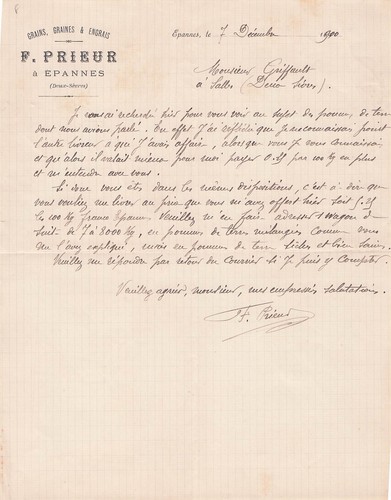 GRAINS, GRAINES & ENGRAIS
F. PRIEUR
à EPANNES
(Deux-Sèvres)
Epannes, le 7 Décembre 1900
Monsieur Griffault
à Salles (Deux-Sèvres).
Je vous ai recherché hier pour vous voir au sujet des pommes de terre
dont nous avions parlé. En effet J'ai réfléchi que je ne connaissais point
l'autre livreur à qui J'avais affaire, alors que vous je vous connaissais
et qu'alors il valait mieux pour moi payer 0.25 par 100 kg en plus
et m'entendre avec vous.
Si donc vous êtes dans les mêmes dispositions, c'est à dire que
vous vouliez me livrer au prix que vous m'avez offert hier soit 5.25
les 100 kg franco Epannes. Veuillez m'en faire adresser 1 wagon de
suite de 7 à 8000 kg, en pommes de terre mélangées comme vous
me l'avez expliqué, mais en pommes de terre sèches et bien saines.
Veuillez me répondre par retour du courrier si J. puis y compter.
Veuillez agréer, monsieur, mes empressées salutations.
F. Prieur